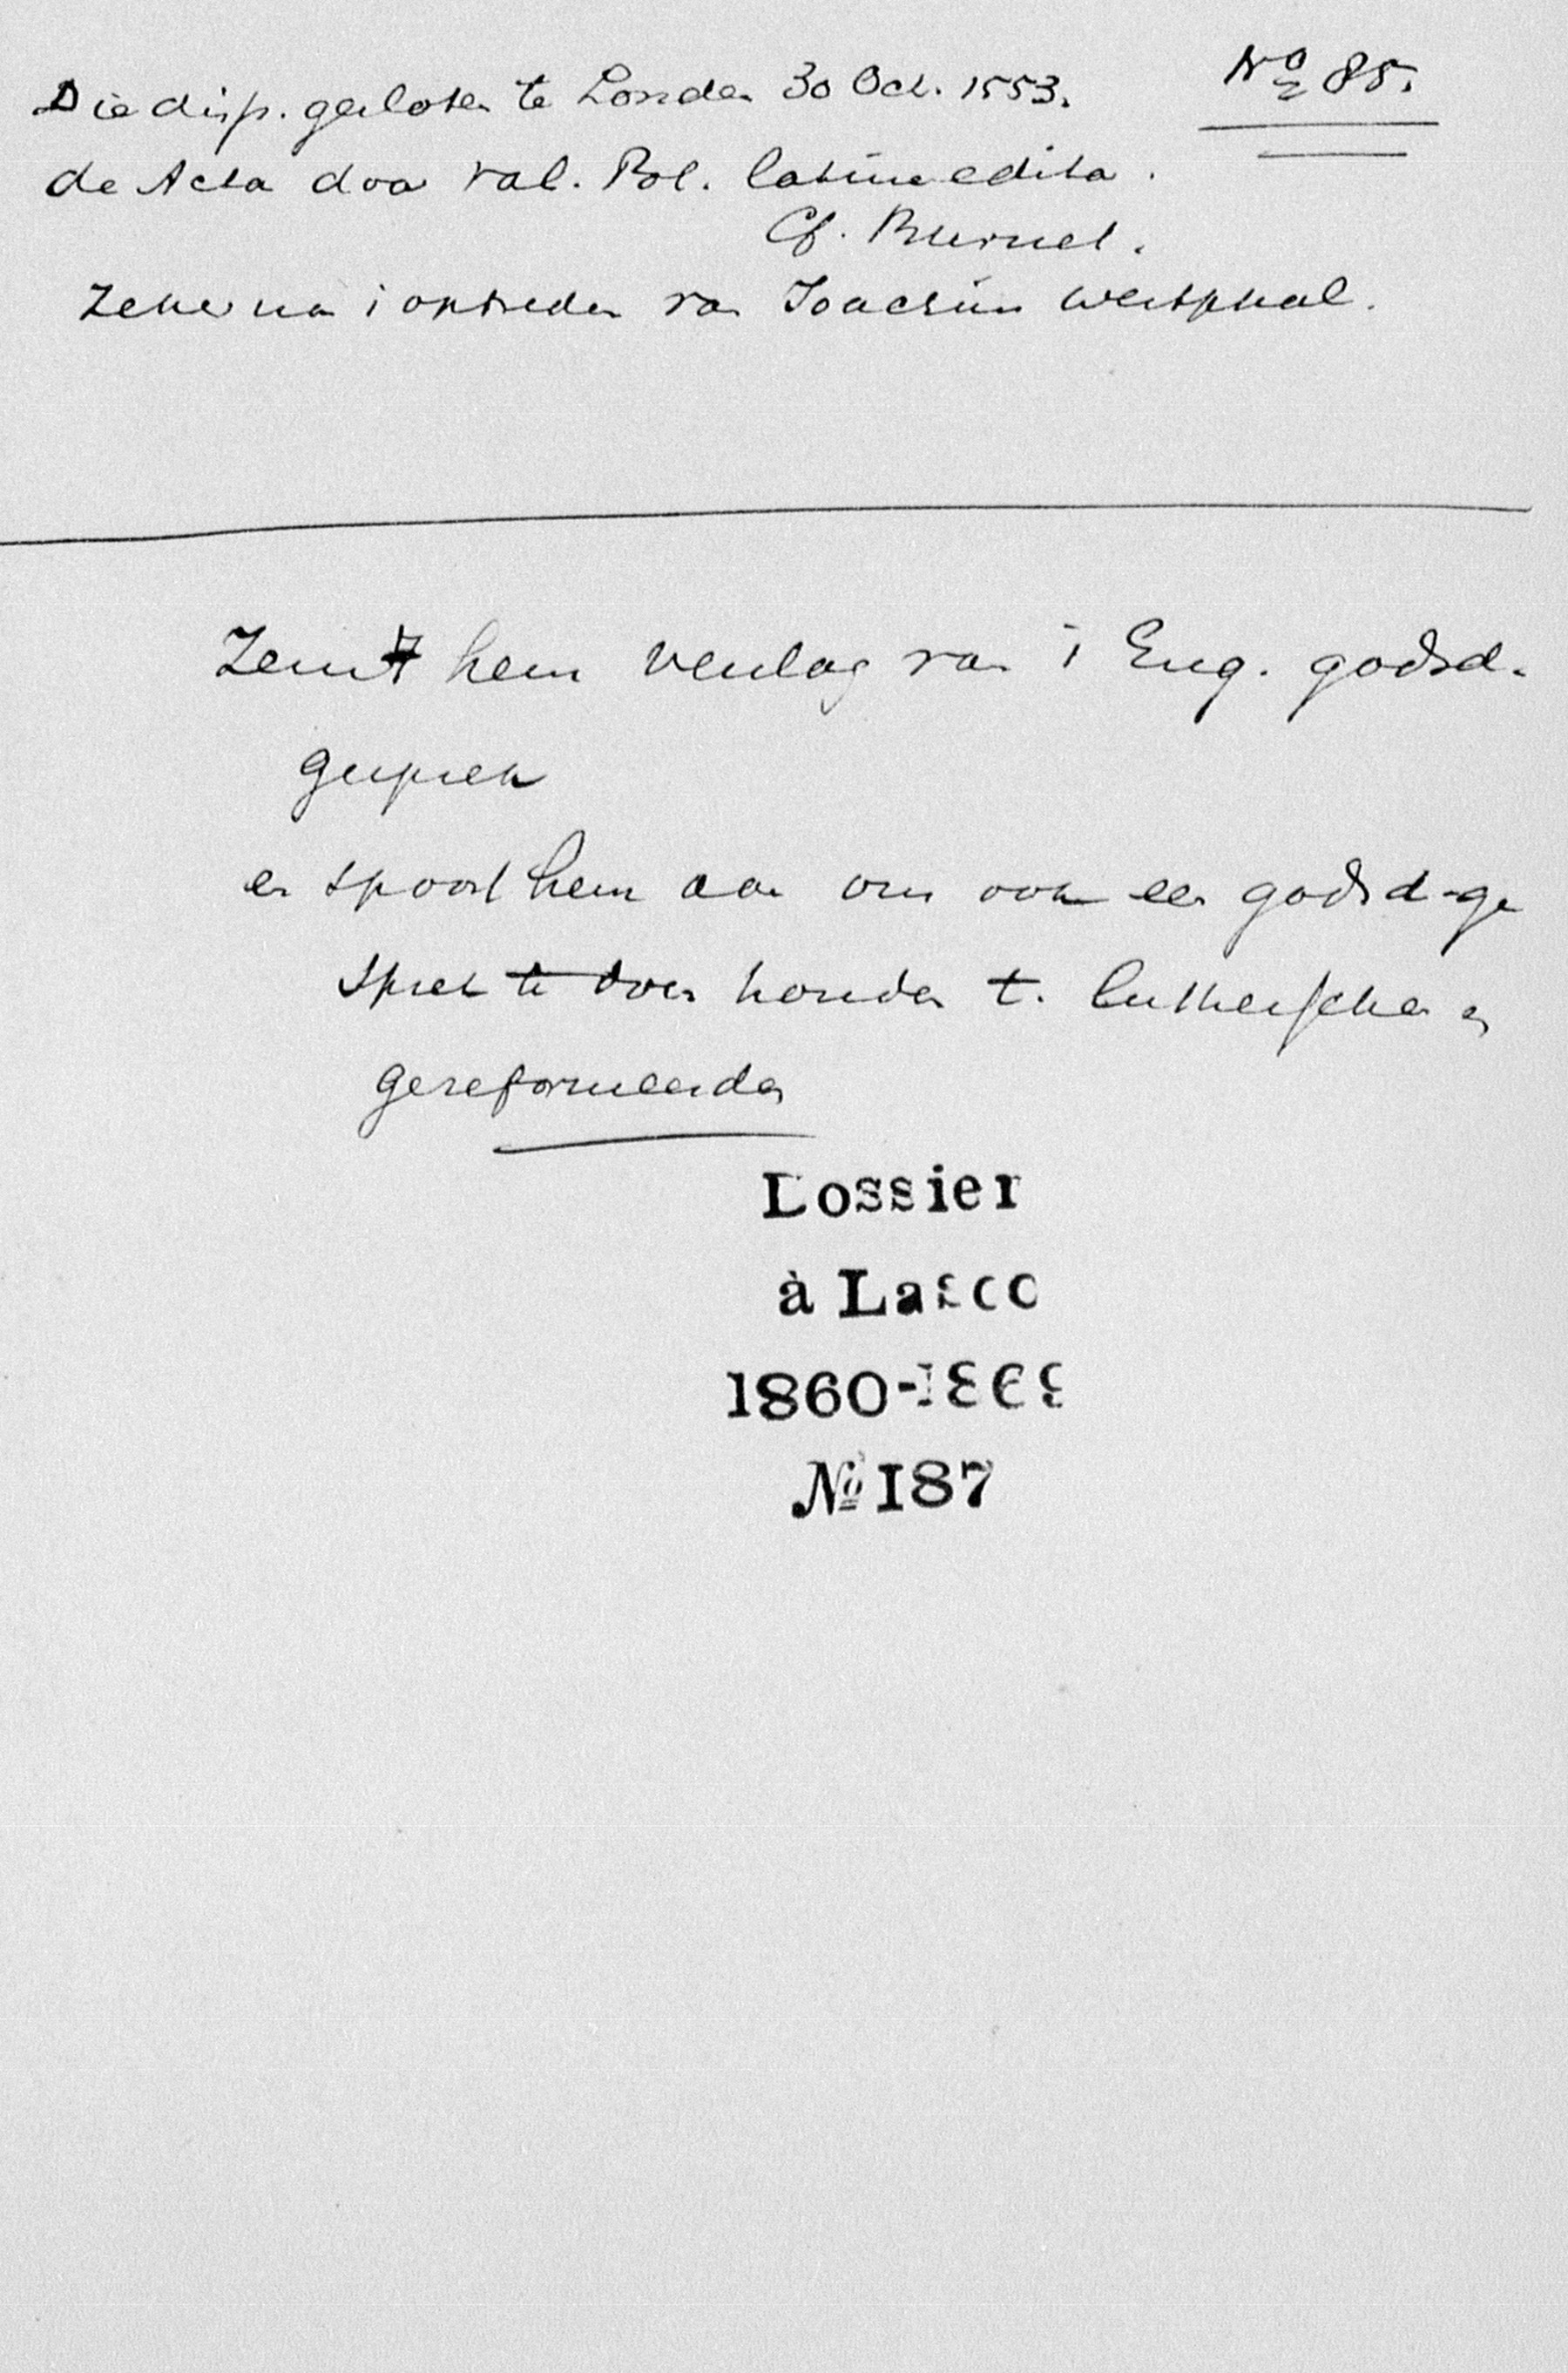 No 85.
Die disp. gesloten te Londen 30 Oct. 1553.
de Acta door Val. Pol. latine edita.
Cf. Burnet.
Zeker na 't optreden van Joachim Westphal.
Zendt hem verslag van 't Eng. godsd.
gesprek
en spoort hem aan om ook een godsd-ge
sprek te doen houden t. Lutherschen en
gereformeerden
Dossier
à Lasco
1860-1869
No 187